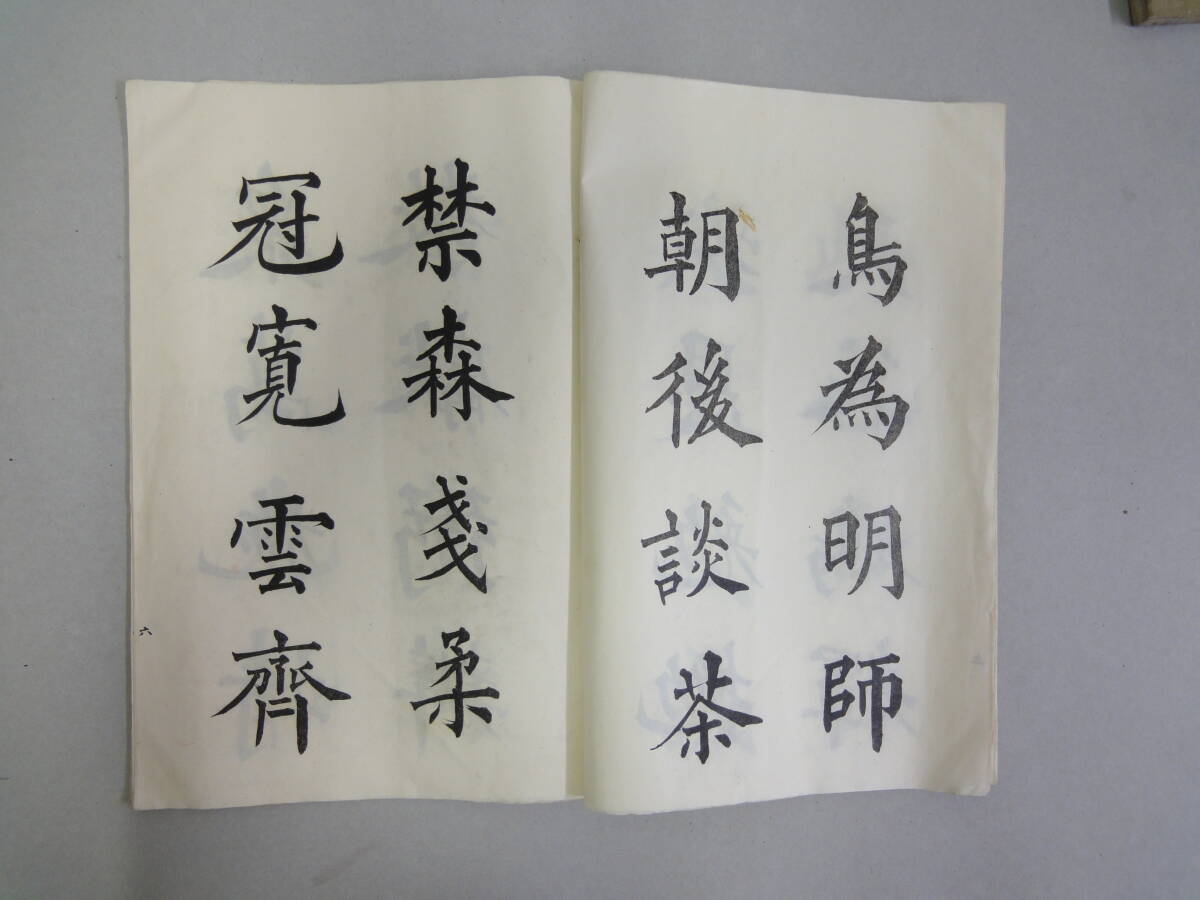 鳥為明師
朝後談茶
禁森戔柔
冠寛雲齊
六